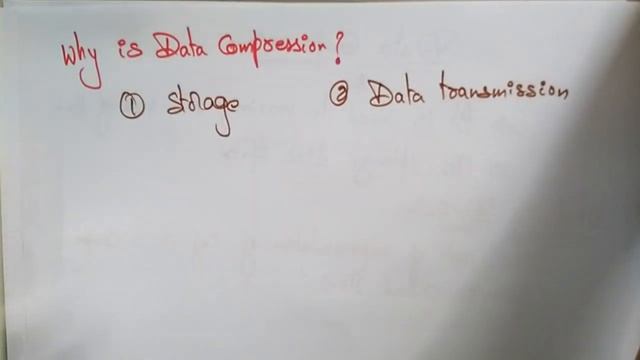 Why is Data Compression?
① Storage ② Data transmission